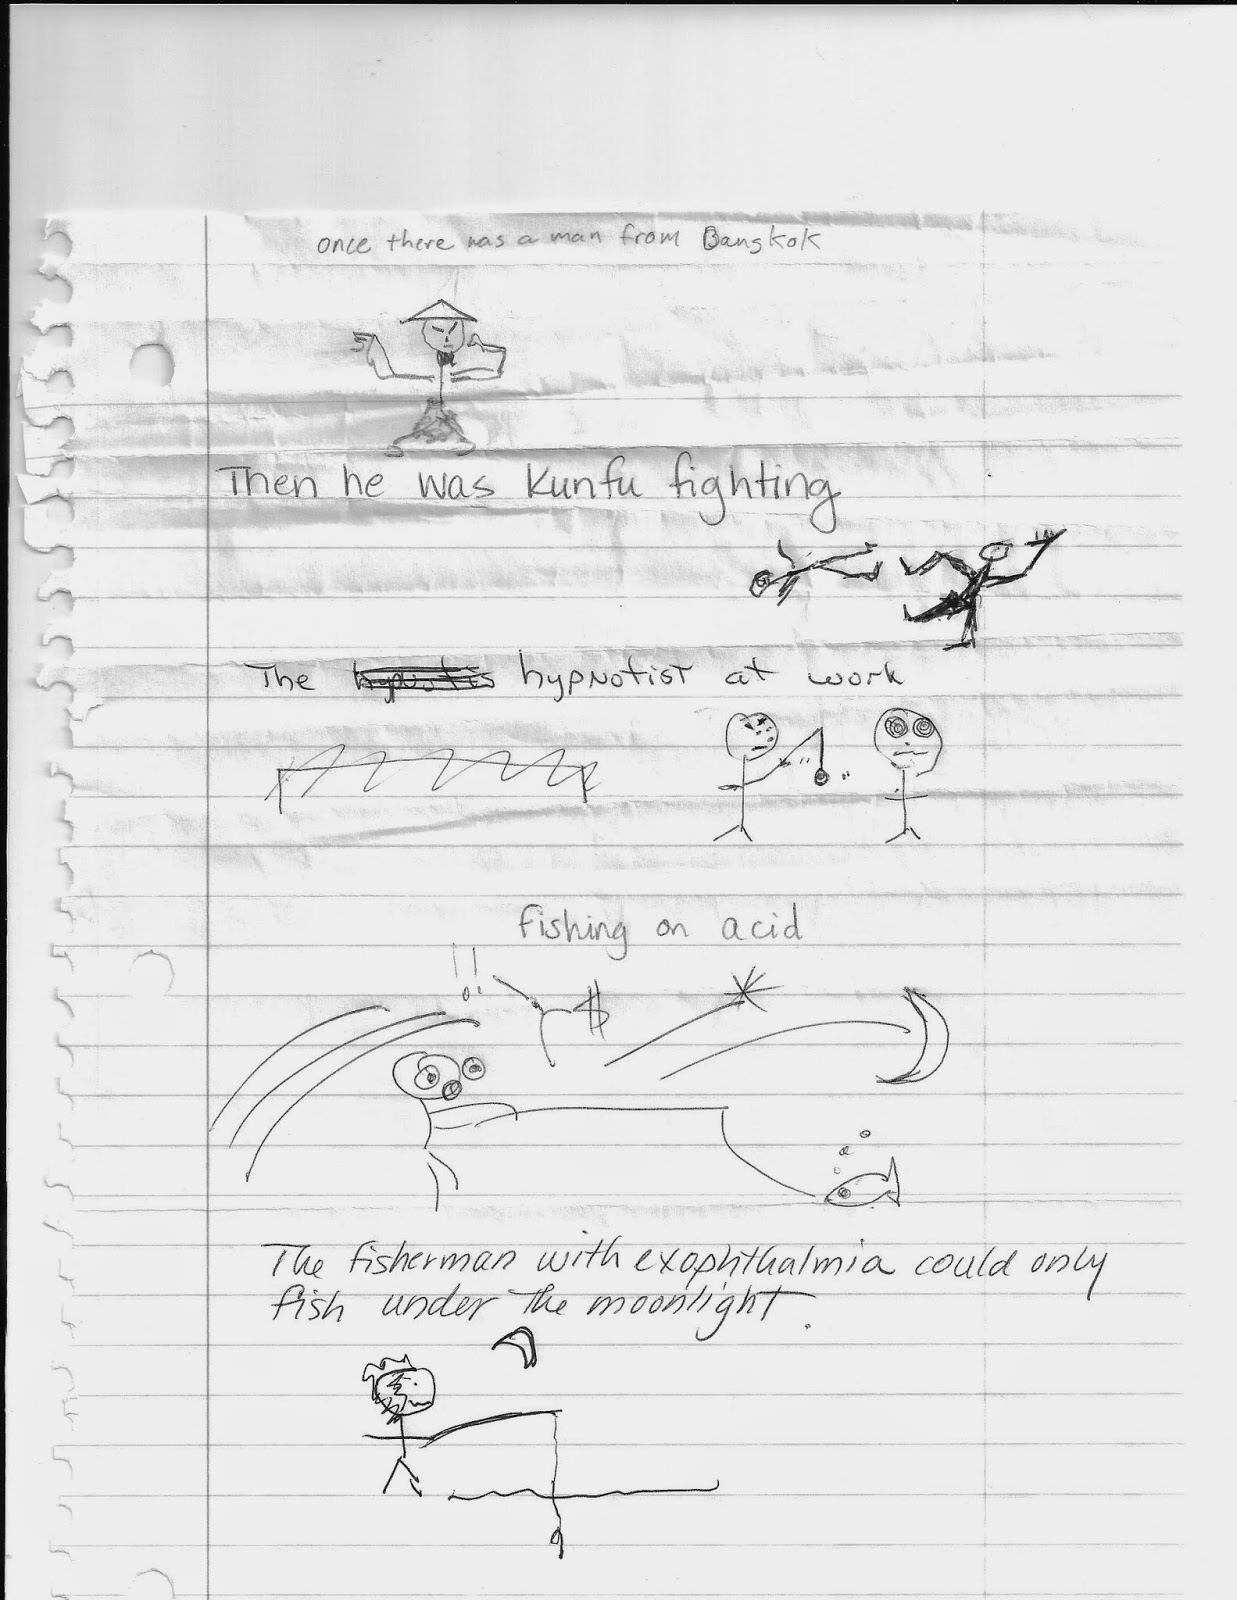 once there was a man from Bangkok
Then he was Kunfu fighting
The hypnotis hypnotist at work
fishing on acid
!!
$
The fisherman with exophthalmia could only
fish under the moonlight.